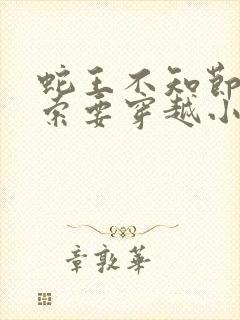 蛇王不知节
索要穿越小
章敦华